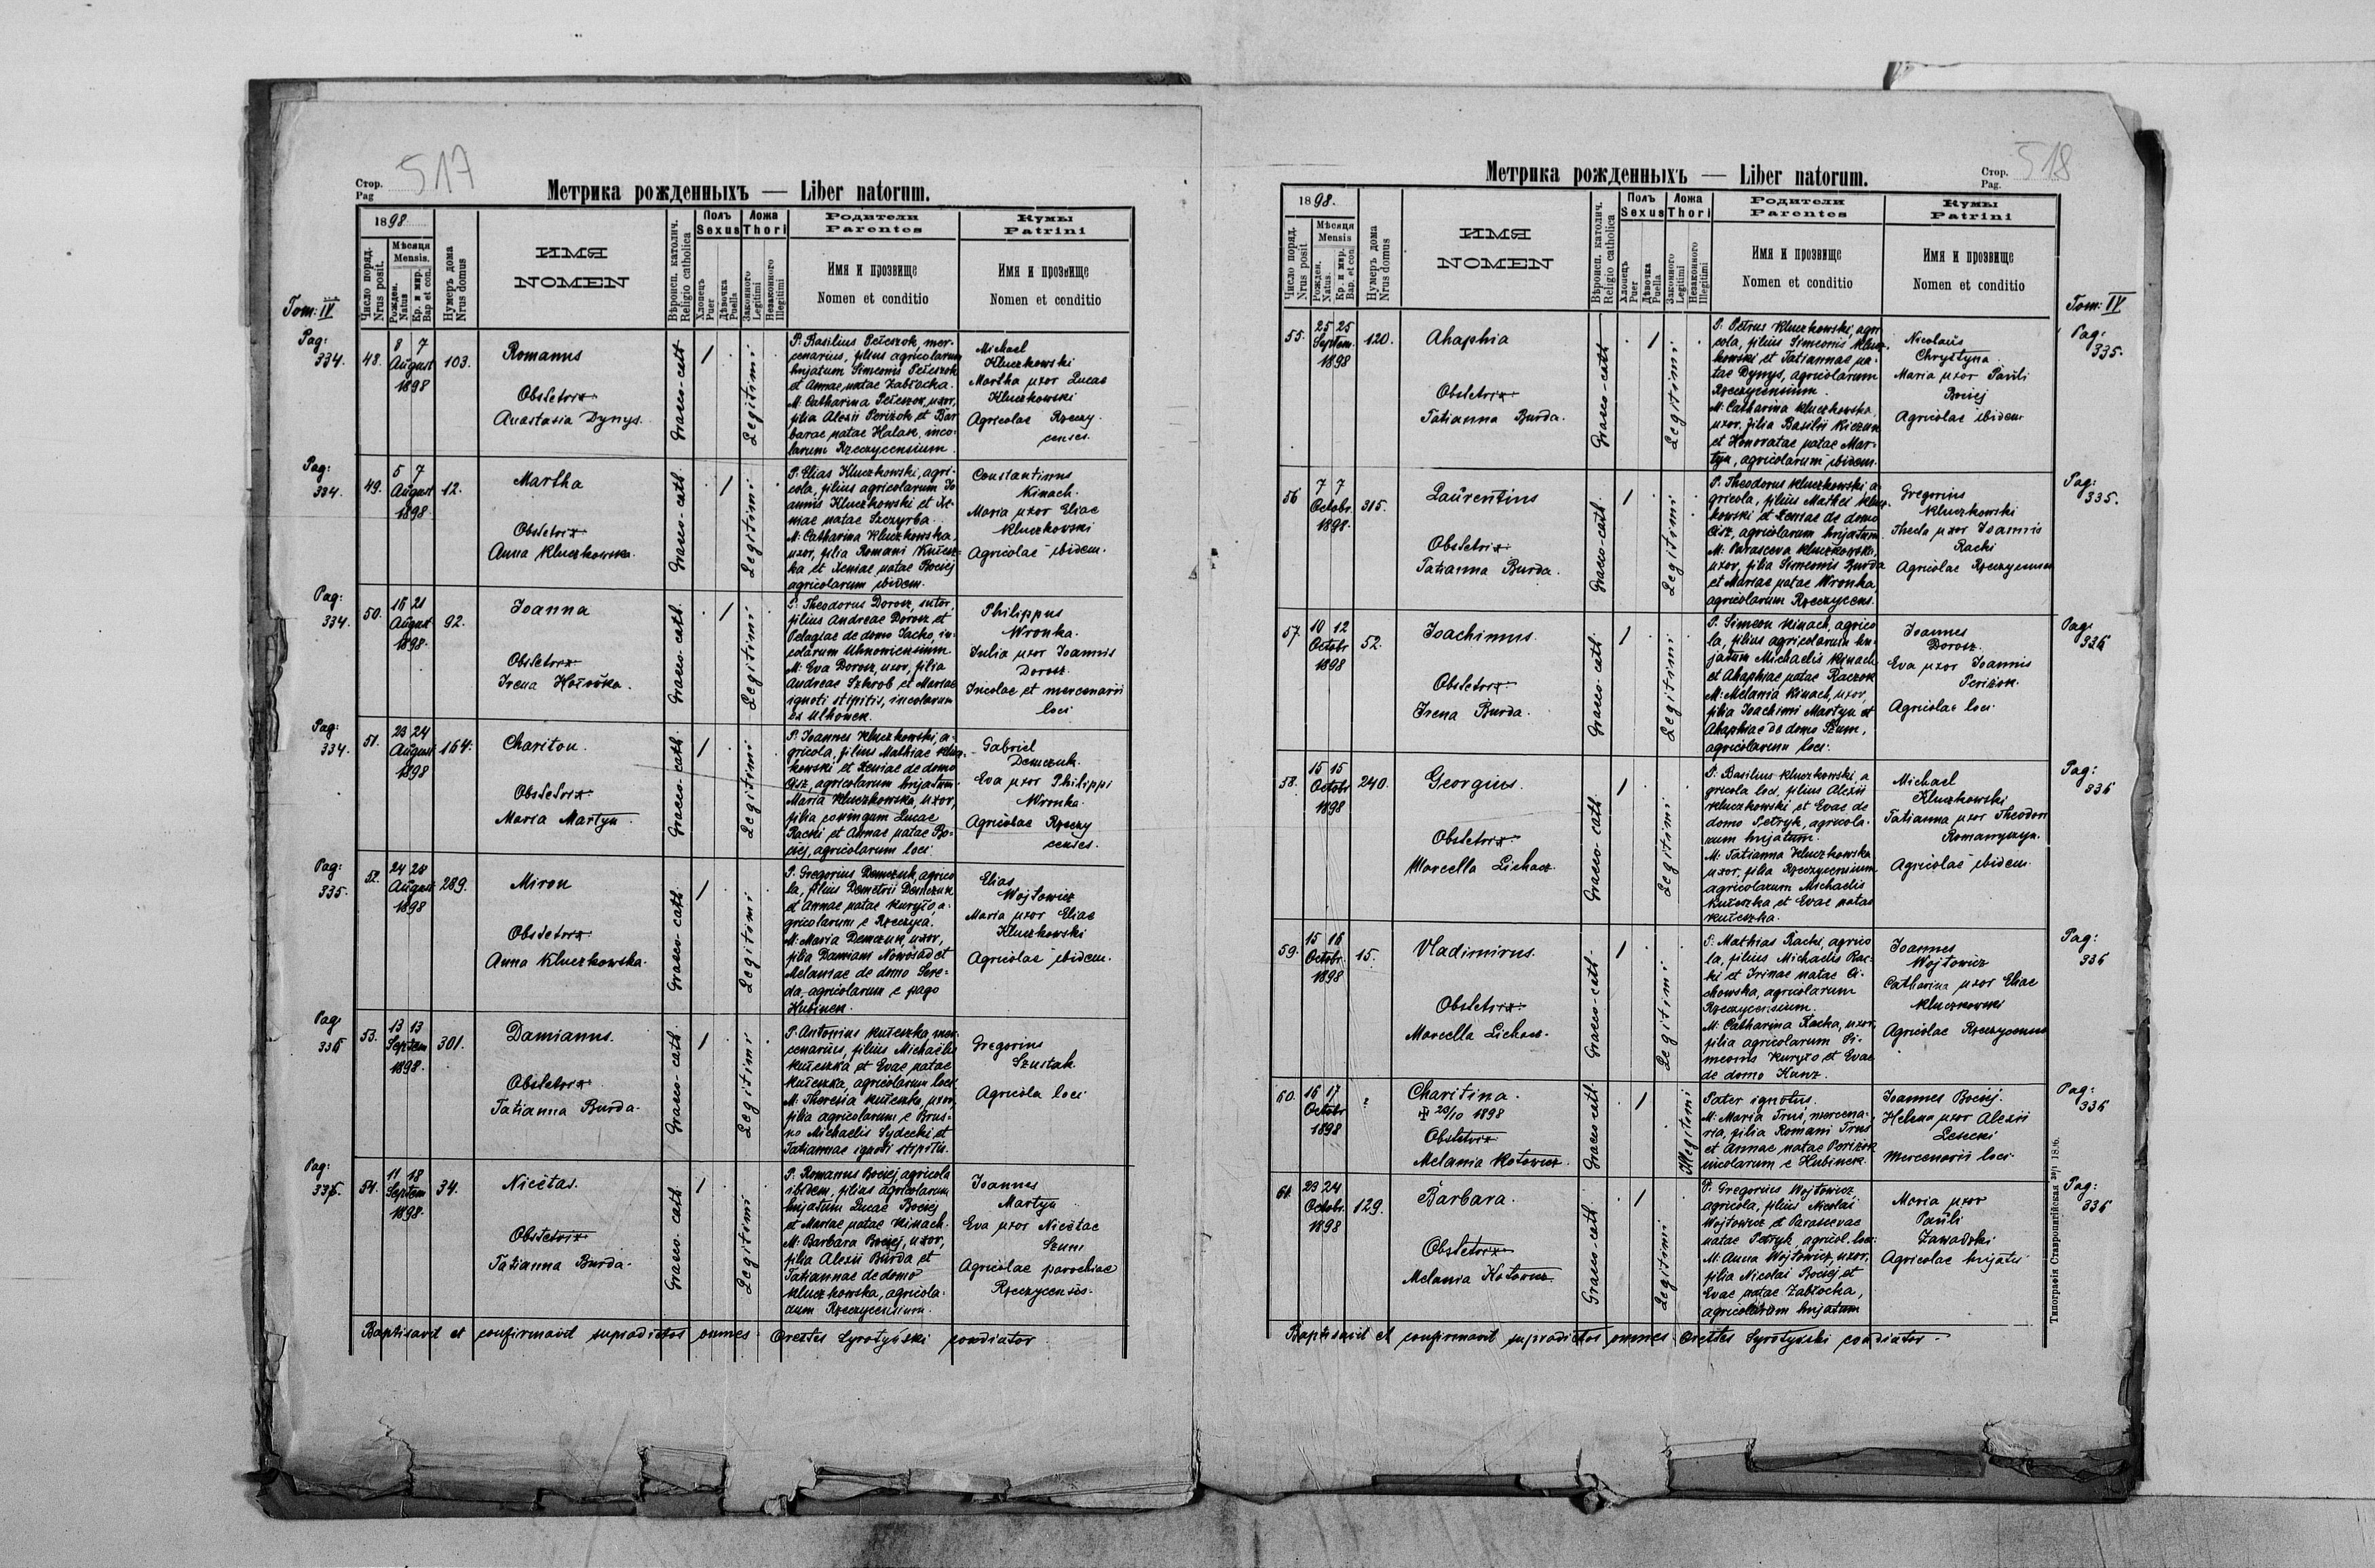 517
Стор.
Pag
Метрика рожденныхъ — Liber natorum.
1898.
Число поряд.
Nrus posit.
Мѣсяця
Mensis.
Рожден.
Natus
Кр. и мир.
Bap et con.
Нумеръ дома
Nrus domus
ИМЯ
NOMEN
Вѣроисп. католич.
Religio catholica
Полъ
Sexus
Хлопецъ
Puer
Дѣвочка
Puella
Ложа
Thori
Законного
Legitimi
Незаконного
Illegitimi
Родители
Parentes
Имя и прозвище
Nomen et conditio
Кумы
Patrini
Имя и прозвище
Nomen et conditio
Tom: IV
Pag:
334.
48.
8 7
August
1898
103.
Romanus
Obstetrix
Anastasia Dynys.
Graeco-cath
Legitimi
P: Basilius Pełeszok, mer-
cenarius, filius agricolarum
hujatum Simeonis Pełeszok
et Annae natae Zabłocka.
M: Catharina Pełeszok, uxor,
filia Alexii Periżok et Bar
barae natae Halas, inco-
larum Rzeczycensium.
Michael
Kluczkowski
Martha uxor Lucae
Kluczkowski
Agricolae Rzeczy-
censes.
Pag:
334.
49.
5 7
August
1898
12.
Martha
Obstetrix
Anna Kluczkowska.
Graeco-cath.
Legitimi
P: Elias Kluczkowski, agri-
cola, filius agricolarum Jo
annis Kluczkowski et Xe-
niae natae Szczyrba.
M: Catharina Kluczkowska,
uxor, filia Romani Kułesz-
ka et Xeniae natae Bociej
agricolarum ibidem.
Constantinus
Kinach.
Maria uxor Eliae
Kluczkowski
Agricolae ibidem.
Pag:
334.
50.
16 21
August
1898.
92.
Joanna
Obstetrix
Irena
Graeco-cath.
Legitimi
P: Theodorus Dorosz, sutor,
filius Andreae Dorosz et
Pelagiae de domo Jacko, in-
colarum Uhnowiensium
M: Eva Dorosz, uxor, filia
Andreae Szkrob et Mariae
ignoti stipitis, incolarum
ex Ulhowek.
Philippus
Wronka.
Julia uxor Joannis
Dorosz.
Incolae et mercenarii
loci
Pag:
334.
51.
23 24
August
1898
164.
Chariton.
Obstetrix
Maria Martyn.
Graeco-cath.
Legitimi
P: Joannes Kluczkowski, a-
gricola, filius Mathiae Klucz-
kowski et Xeniae de domo
Cisz, agricolarum hujatum.
Maria Kluczkowska, uxor,
filia conjugum Lucae
Racki et Annae natae Bo-
ciej, agricolarum loci.
Gabriel
Demczuk.
Eva uxor Philippi
Wronka.
Agricolae Rzeczy
censes.
Pag:
335.
52.
24 28
August
1898
289.
Miron
Obstetrix
Anna Kluczkowska.
Graeco-cath.
Legitimi
P: Gregorius Demczuk, agrico
la, filius Demetrii Demczuk
et Annae natae Kuryło, a-
gricolarum e Rzeczyca.
M: Maria Demczuk, uxor,
filia Damiani Nowosad et
Melaniae de domo Sere-
da, agricolarum e pago
Hubinek.
Elias
Wojtowicz
Maria uxor Eliae
Kluczkowski
Agricolae ibidem.
Pag
335
53.
13 13
Septem
1898.
301.
Damianus.
Obstetrix
Tatianna Burda.
Graeco-cath.
Legitimi
P: Antonius Kułeszka, mer-
cenarius, filius Michaelis
Kułeszka et Evae natae
Kułeszka, agricolarum loci.
M: Theresia Kułeszka, uxor,
filia agricolarum e Brus-
no Michaelis Sydecki et
Tatiannae ignoti stipitis.
Gregorius
Szustak.
Agricola loci
Pag:
335.
54.
11 18
Septem
1898.
34.
Nicetas.
Obstetrix
Tatianna Burda.
Graeco-cath.
Legitimi
P: Romanus Bociej, agricola
ibidem, filius agricolarum
hujatum Lucae Bociej
et Mariae natae Kinach.
M: Barbara Bociej, uxor,
filia Alexii Burda et
Tatiannae de domo
Kluczkowska, agricola-
rum Rzeczycensium.
Joannes
Martyn
Eva uxor Nicetae
Szum
Agricolae parochiae
Rzeczycensis.
Baptisavit et confirmavit supradictos omnes: Orestes Syrotyński coadiutor
518
Стор.
Pag.
Метрика рожденныхъ — Liber natorum.
1898.
Число поряд.
Nrus posit
Мѣсяця
Mensis
Рожден.
Natus.
Кр. и мир.
Bap. et con
Нумеръ дома
Nrus domus
ИМЯ
NOMEN
Вѣроисп. католич.
Religio catholica
Полъ
Sexus
Хлопецъ
Puer
Дѣвочка
Puella
Ложа
Thori
Законного
Legitimi
Незаконного
Illegitimi
Родители
Parentes
Имя и прозвище
Nomen et conditio
Кумы
Patrini
Имя и прозвище
Nomen et conditio
Tom: IV
55.
25 25
Septem.
1898
120.
Ahaphia
Obstetrix
Tatianna Burda.
Graeco-cath
Legitimi
P: Petrus Kluczkowski, agri
cola, filius Simeonis Klucz-
kowski et Tatiannae na-
tae Dynys, agricolarum
Rzeczycensium.
M: Catharina Kluczkowska,
uxor, filia Basilii Kiczun
et Honoratae natae Mar-
tyn, agricolarum ibidem.
Nicolaus
Chrystyna.
Maria uxor Pauli
Bociej
Agricolae ibidem
Pag:
335.
56
7 7
Octobr.
1898.
315.
Laurentius
Obstetrix
Tatianna Burda.
Graeco-cath.
Legitimi
P: Theodorus Kluczkowski a-
gricola, filius Mathei Klucz-
kowski et Xeniae de domo
Cisz, agricolarum hujatum
M: Parasceva Kluczkowski,
uxor, filia Simeonis Burda
et Mariae natae Wronka,
agricolarum Rzeczycens.
Gregorius
Kluczkowski
Thecla uxor Joannis
Racki
Agricolae Rzeczycenses
Pag:
335.
57.
10 12
Octobr
1898
52.
Joachimus.
Obstetrix
Irena Burda.
Graeco-cath
Legitimi
P: Simeon Kinach, agrico
la, filius agricolarum hu-
jatum Michaelis Kinach
et Ahaphiae natae Raczok
M: Melania Kinach, uxor,
filia Joachimi Martyn et
Ahaphiae de domo Szum,
agricolarum loci.
Joannes
Dorosz.
Eva uxor Joannis
Periżok.
Agricolae loci
Pag:
336
58.
15 15
Octobr
1898
240.
Georgius.
Obstetrix
Marcella Lichacz.
Graeco-cath.
Legitimi
P: Basilius Kluczkowski, a
gricola loci, filius Alexii
Kluczkowski et Evae de
domo Petryk, agricola-
rum hujatum.
M: Tatianna Kluczkowska
uxor, filia Rzeczycensium
agricolarum Michaelis
Kułeszka et Evae natae
Kułeszka.
Michael
Kluczkowski
Tatianna uxor Theodori
Romanyszyn.
Agricolae ibidem.
Pag:
336
59.
15 16
Octobr.
1898
15.
Vladimirus.
Obstetrix
Marcella Lichacz.
Graeco-cath.
Legitimi
P: Mathias Racki, agrico
la, filius Michaelis Rac-
ki et Irinae natae Ci-
chowska, agricolarum
Rzeczycensium.
M: Catharina Racka, uxor,
filia agricolarum Si-
meonis Kuryło et Evae
de domo Kunz.
Joannes
Wojtowicz
Catharina uxor Eliae
Kluczkowski
Agricolae Rzeczycenses
Pag:
336
60.
16 17
Octobr
1898
?
Charitina.
✠ 20/10 1898
Obstetrix
Melania Kotowicz.
Graeco-cath.
Illegitimi
Pater ignotus.
M: Maria Trus, mercena-
ria, filia Romani Trus
et Annae natae Periżok
incolarum e Hubinek.
Joannes Bociej.
Helena uxor Alexii
Lesecki
Mercenarii loci.
Pag:
336
61.
23 24
Octobr.
1898
129.
Barbara.
Obstetrix
Melania Kotowicz
Graeco-cath.
Legitimi
P: Gregorius Wojtowicz,
agricola, filius Nicolai
Wojtowicz et Parascevae
natae Petryk, agricol. loci.
M: Anna Wojtowicz, uxor,
filia Nicolai Bociej et
Evae natae Zabłocka,
agricolarum hujatum
Maria uxor
Pauli
Zawadski
Agricolae hujatis
Pag:
336
Baptisavit et confirmavit supradictos omnes: Orestes Syrotyński coadiutor.
Типографія Ставропигійская